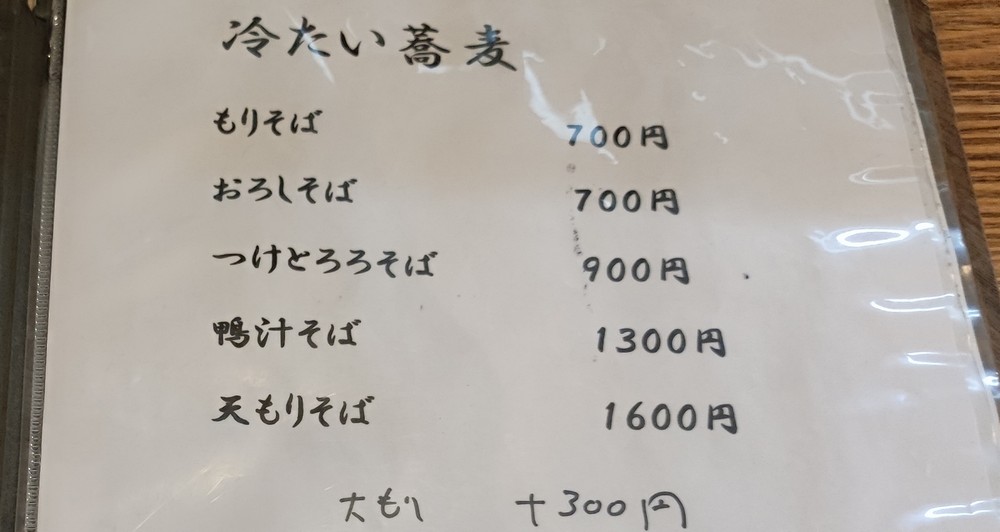 冷たい蕎麦
もりそば 700円
おろしそば 700円
つけとろろそば 900円
鴨汁そば 1300円
天もりそば 1600円
大もり +300円